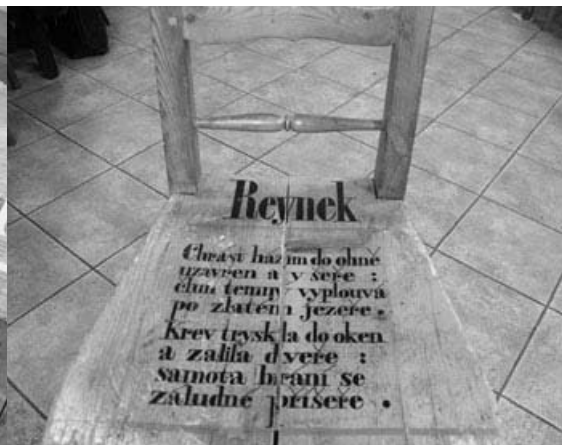 Reynek
Chrastí házím do ohně
uzavřen a v šeře :
člun temný vyplouvá
po zlatém jezeře .
Krev tryskla do oken
a zalila dveře :
samota brání se
záludné příšeře .